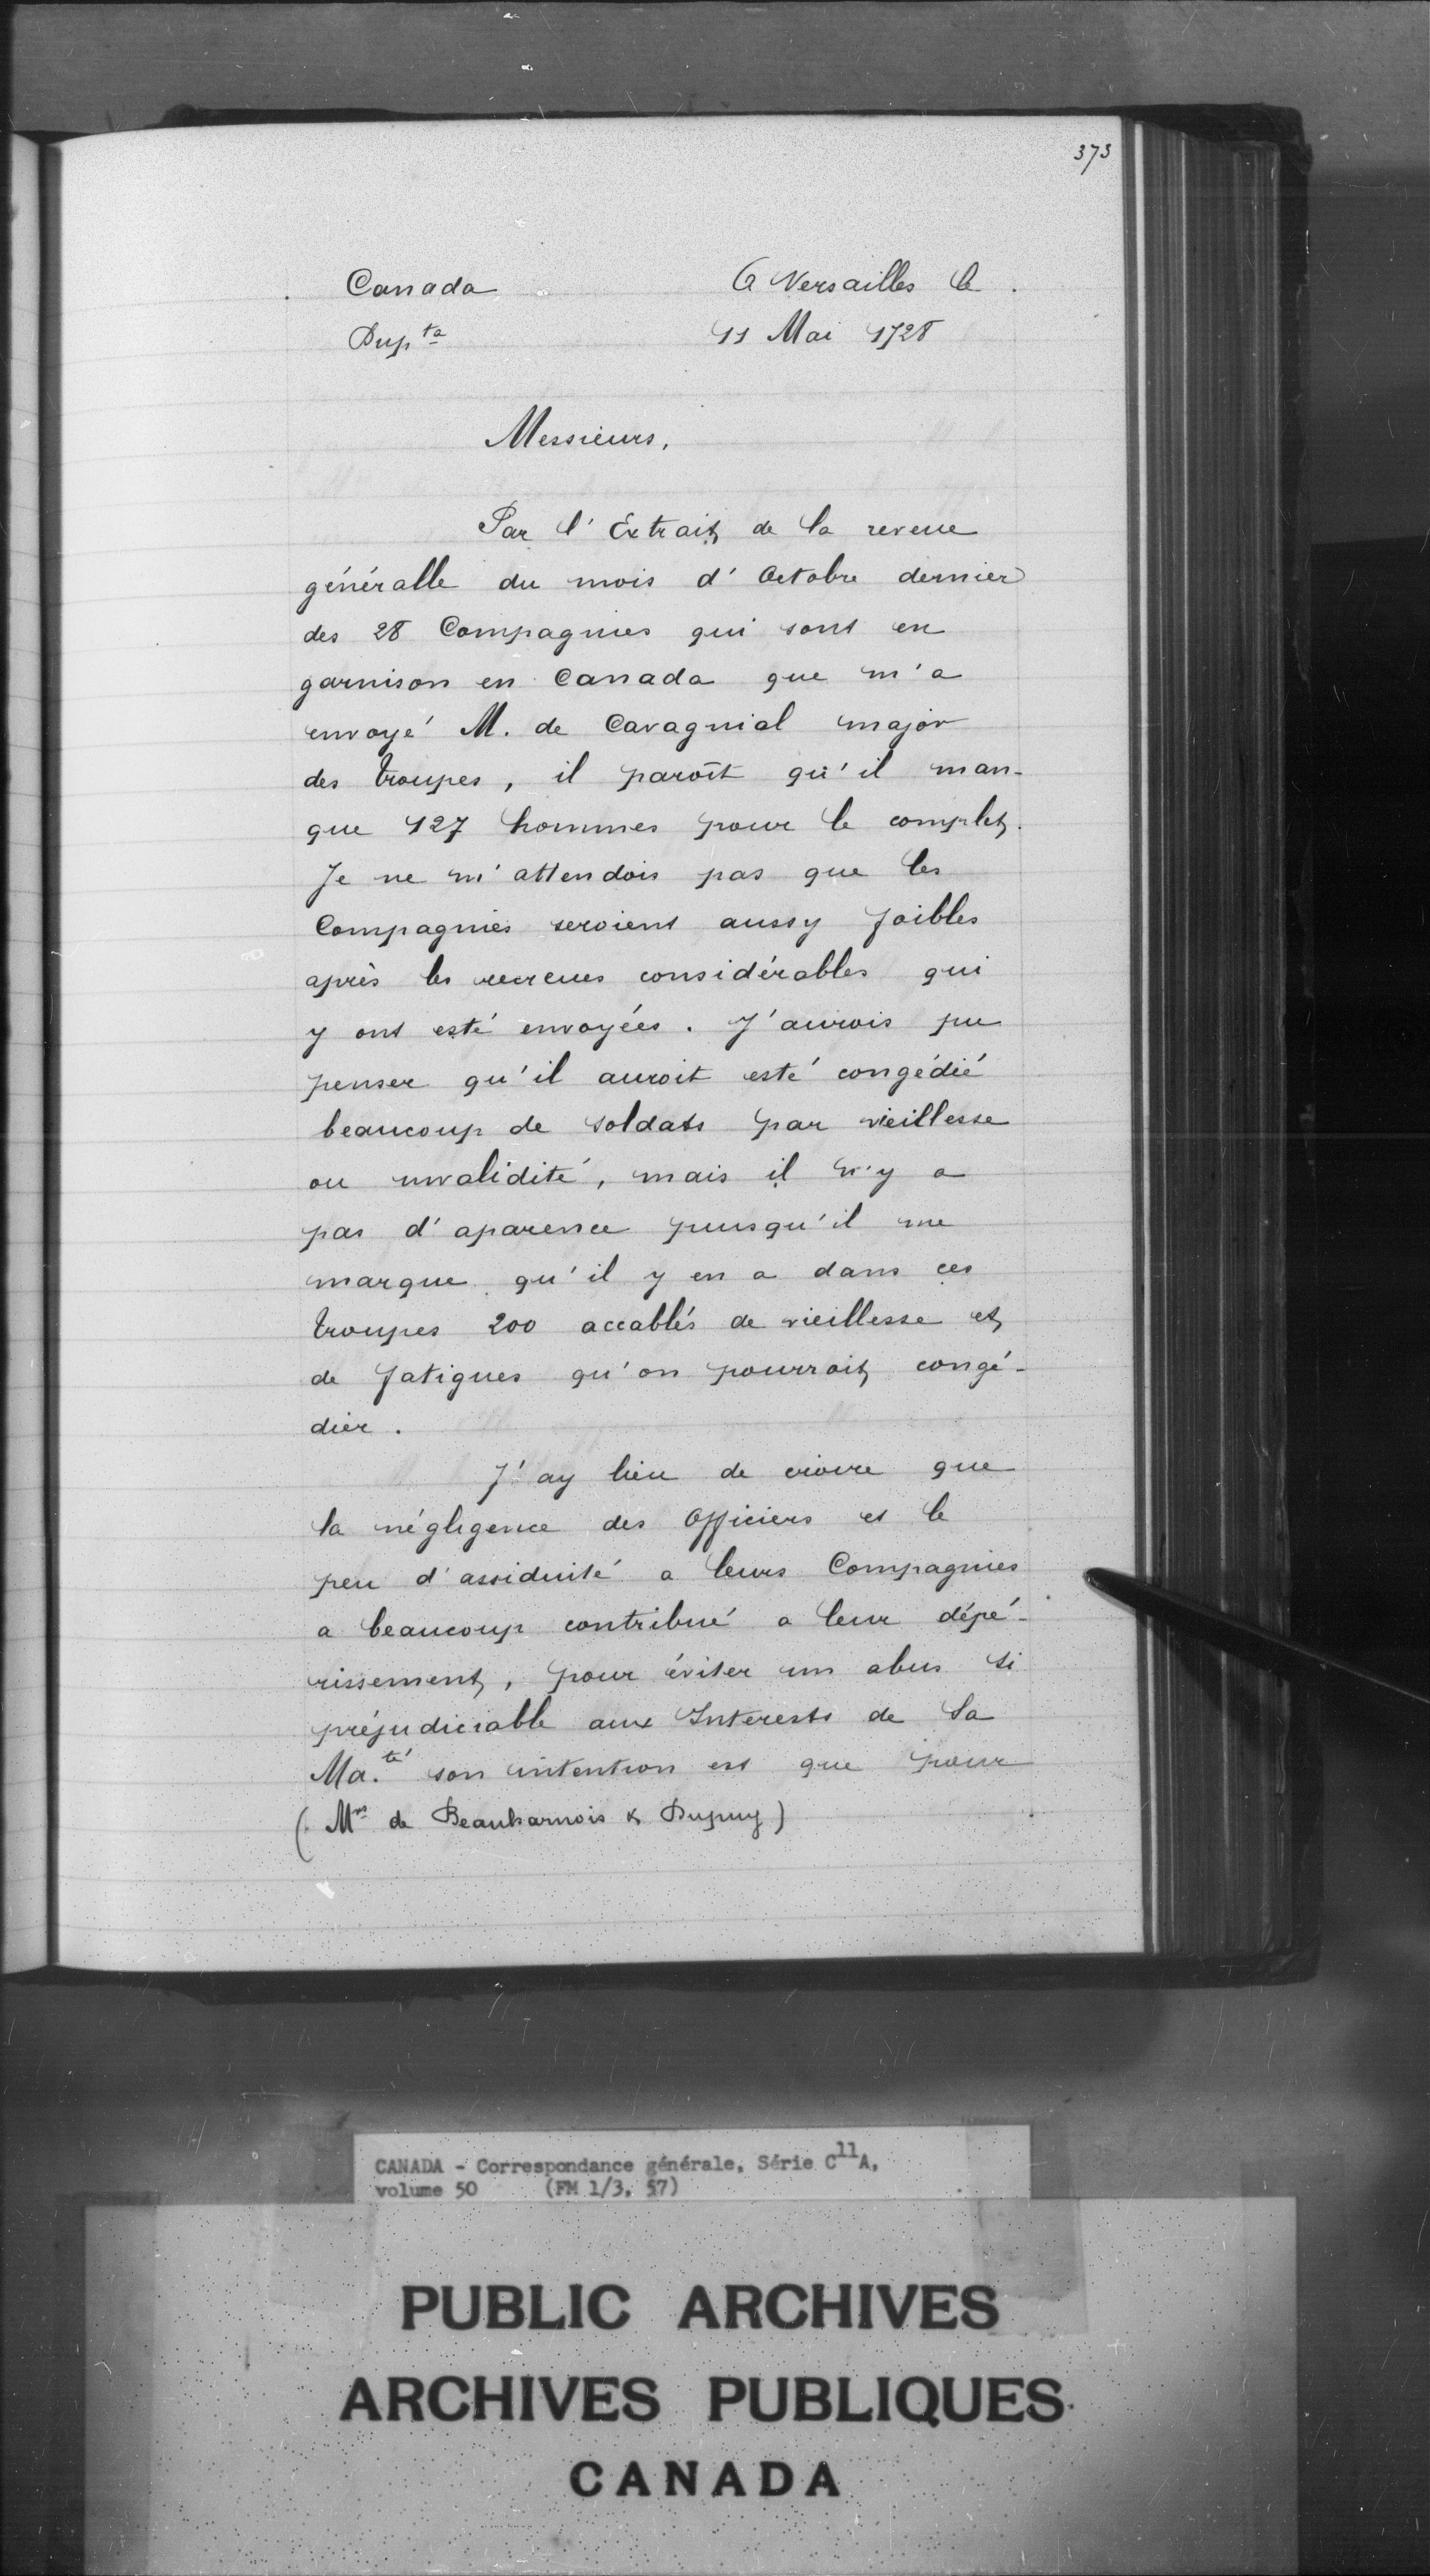 373
Canada A Versailles le
Dup.ta 11 Mai 1728
Messieurs,
Par l'Extrait de la reveue
généralle du mois d'Octobre dernier
des 28 Compagnies qui sont en
garnison en Canada que m'a
envoyé M. de Cavagnial major
des troupes, il paroît qu'il man-
que 127 hommes pour le complet.
Je ne m'attendois pas que les
Compagnies seroient aussy foibles
après les recreues considérables qui
y ont esté envoyées. J'aurois pu
penser qu'il auroit esté congédié
beaucoup de soldats par vieillesse
ou invalidité, mais il n'y a
pas d'aparence puisqu'il me
marque qu'il y en a dans ces
troupes 200 accablés de vieillesse et
de fatigues qu'on pourroit congé-
dier.
J'ay lieu de croire que
la négligence des Officiers et le
peu d'assiduité a leurs Compagnies
a beaucoup contribué a leur dépé-
rissement, pour éviter un abus si
préjudiciable aux Interests de Sa
Ma.té son intention est que pour
(Mrs de Beauharnois & Dupuy)
CANADA - Correspondance générale, Série C11A,
volume 50 (FM 1/3, 57)
PUBLIC ARCHIVES
ARCHIVES PUBLIQUES
CANADA